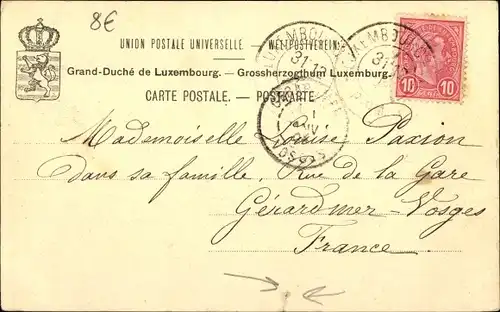 8€
UNION POSTALE UNIVERSELLE. — WELTPOSTVEREIN.
Grand-Duché de Luxembourg. — Grossherzogthum Luxemburg.
CARTE POSTALE. — POSTKARTE
LUXEMBOURG
31
LUXEMBOURG
31
10 10
VOSGES
Mademoiselle Louise Paxion
dans sa famille, Rue de la Gare
Gérardmer-Vosges
France.